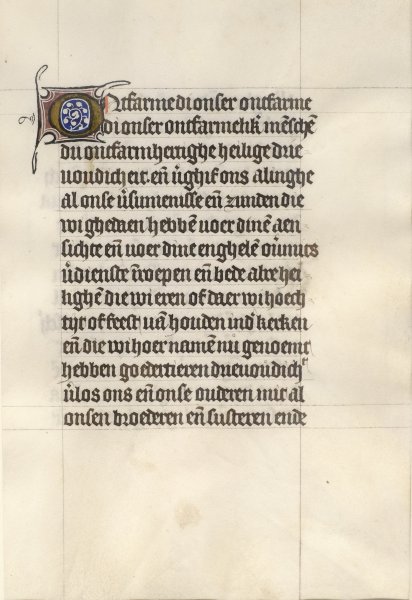 Ontfarme di onser ontfarme
di onser ontfarmelik̄ mēschē
du ontfarmhertighe heilige drie
uoudich eit. eñ v̄ghif ons alinghe
al onse v̄sumenisse eñ zunden die
wi ghedaen hebbē uoer dinē aen
sichte eñ uoer dine enghelē
v̄dienste eñ bede alre hei
lighē die wi eren of daer wi hoech
tyt of feest uā houden in d̄ kerken
eñ die wi hoer namē nu genoemt
hebben goedertieren drieuoudich
v̄los ons eñ onse ouderen mit al
onsen broederen eñ susteren ende